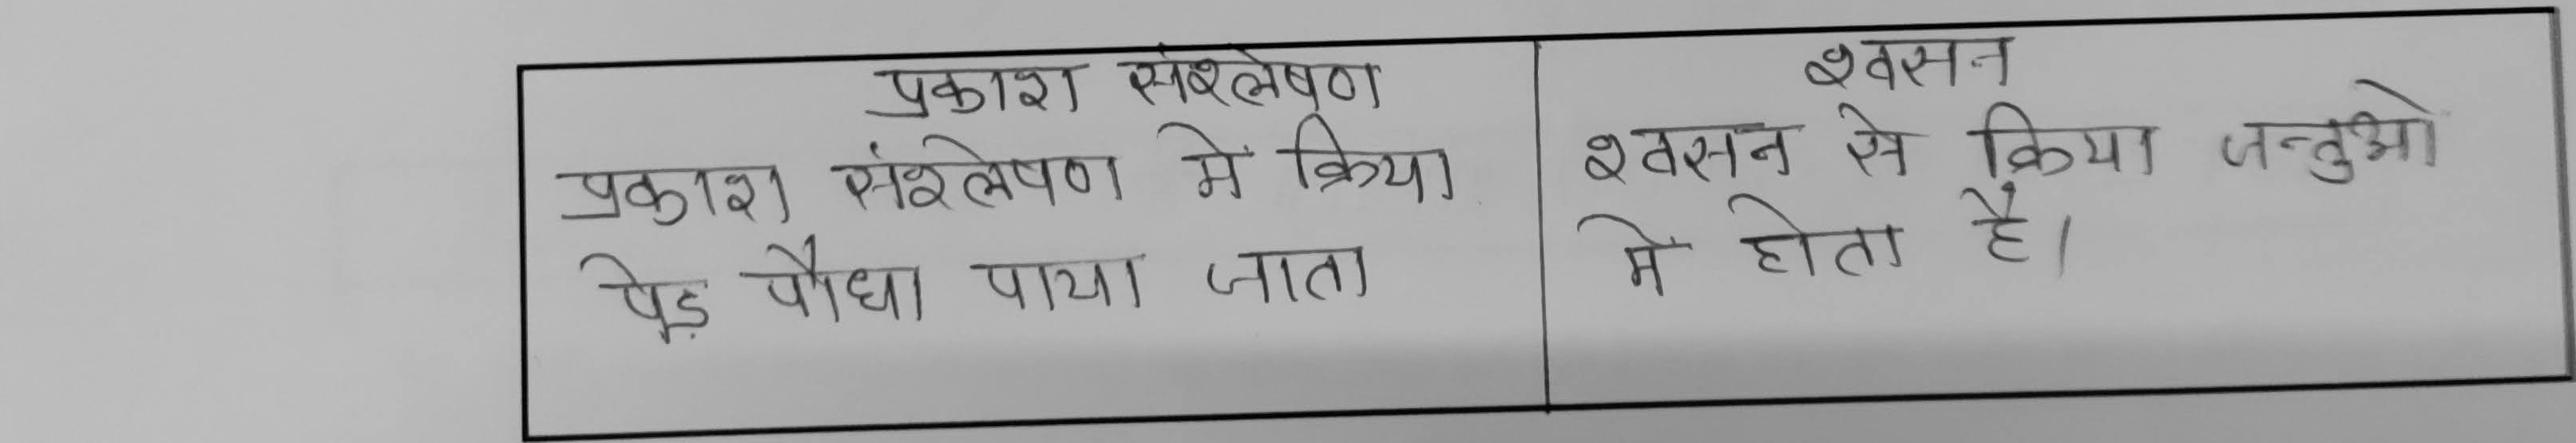 प्रकाश संश्लेषण
प्रकाश संश्लेषण में क्रिया
पेड़ पौधा पाया जाता
श्वसन
श्वसन से क्रिया जन्तुओ
में होता है।